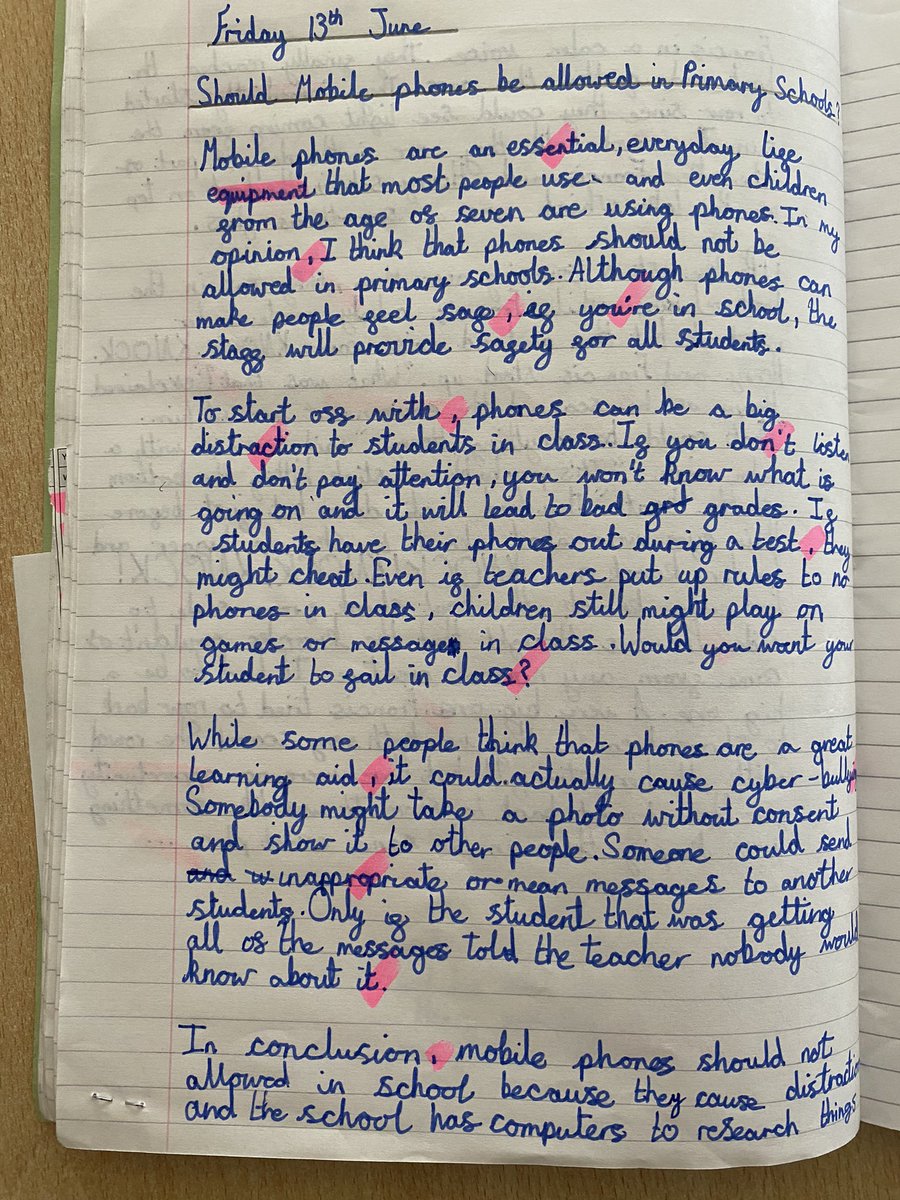 Friday 13th June
Should Mobile phones be allowed in Primary Schools?
Mobile phones are an essential, everyday life
equipment that most people use and even children
from the age of seven are using phones. In my
opinion, I think that phones should not be
allowed in primary schools. Although phones can
make people feel safe, if you're in school, the
staff will provide safety for all students.
To start off with, phones can be a big
distraction to students in class. If you don't listen
and don't pay attention, you won't know what is
going on and it will lead to bad grd grades. If
students have their phones out during a test, they
might cheat. Even if teachers put up rules to no
phones in class, children still might play on
games or message in class. Would you want your
student to fail in class?
While some people think that phones are a great
learning aid, it could actually cause cyber-bullying
Somebody might take a photo without consent
and show it to other people. Someone could send
and inappropriate or mean messages to another
students. Only if the student that was getting
all of the messages told the teacher nobody would
know about it.
In conclusion, mobile phones should not
allowed in school because they cause distraction
and the school has computers to research things